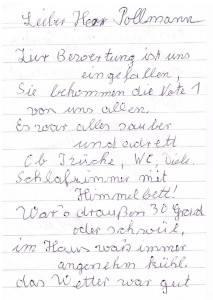 Lieber Herr Pollmann
Zur Bewertung ist uns
eingefallen,
Sie bekommen die Note 1
von uns allen.
Es war alles sauber
und adrett
Ob Küche, WC, Diele.
Schlafzimmer mit
Himmelbett!
War's draußen 30 Grad
oder schwül,
im Haus war's immer
angenehm kühl.
das Wetter war gut